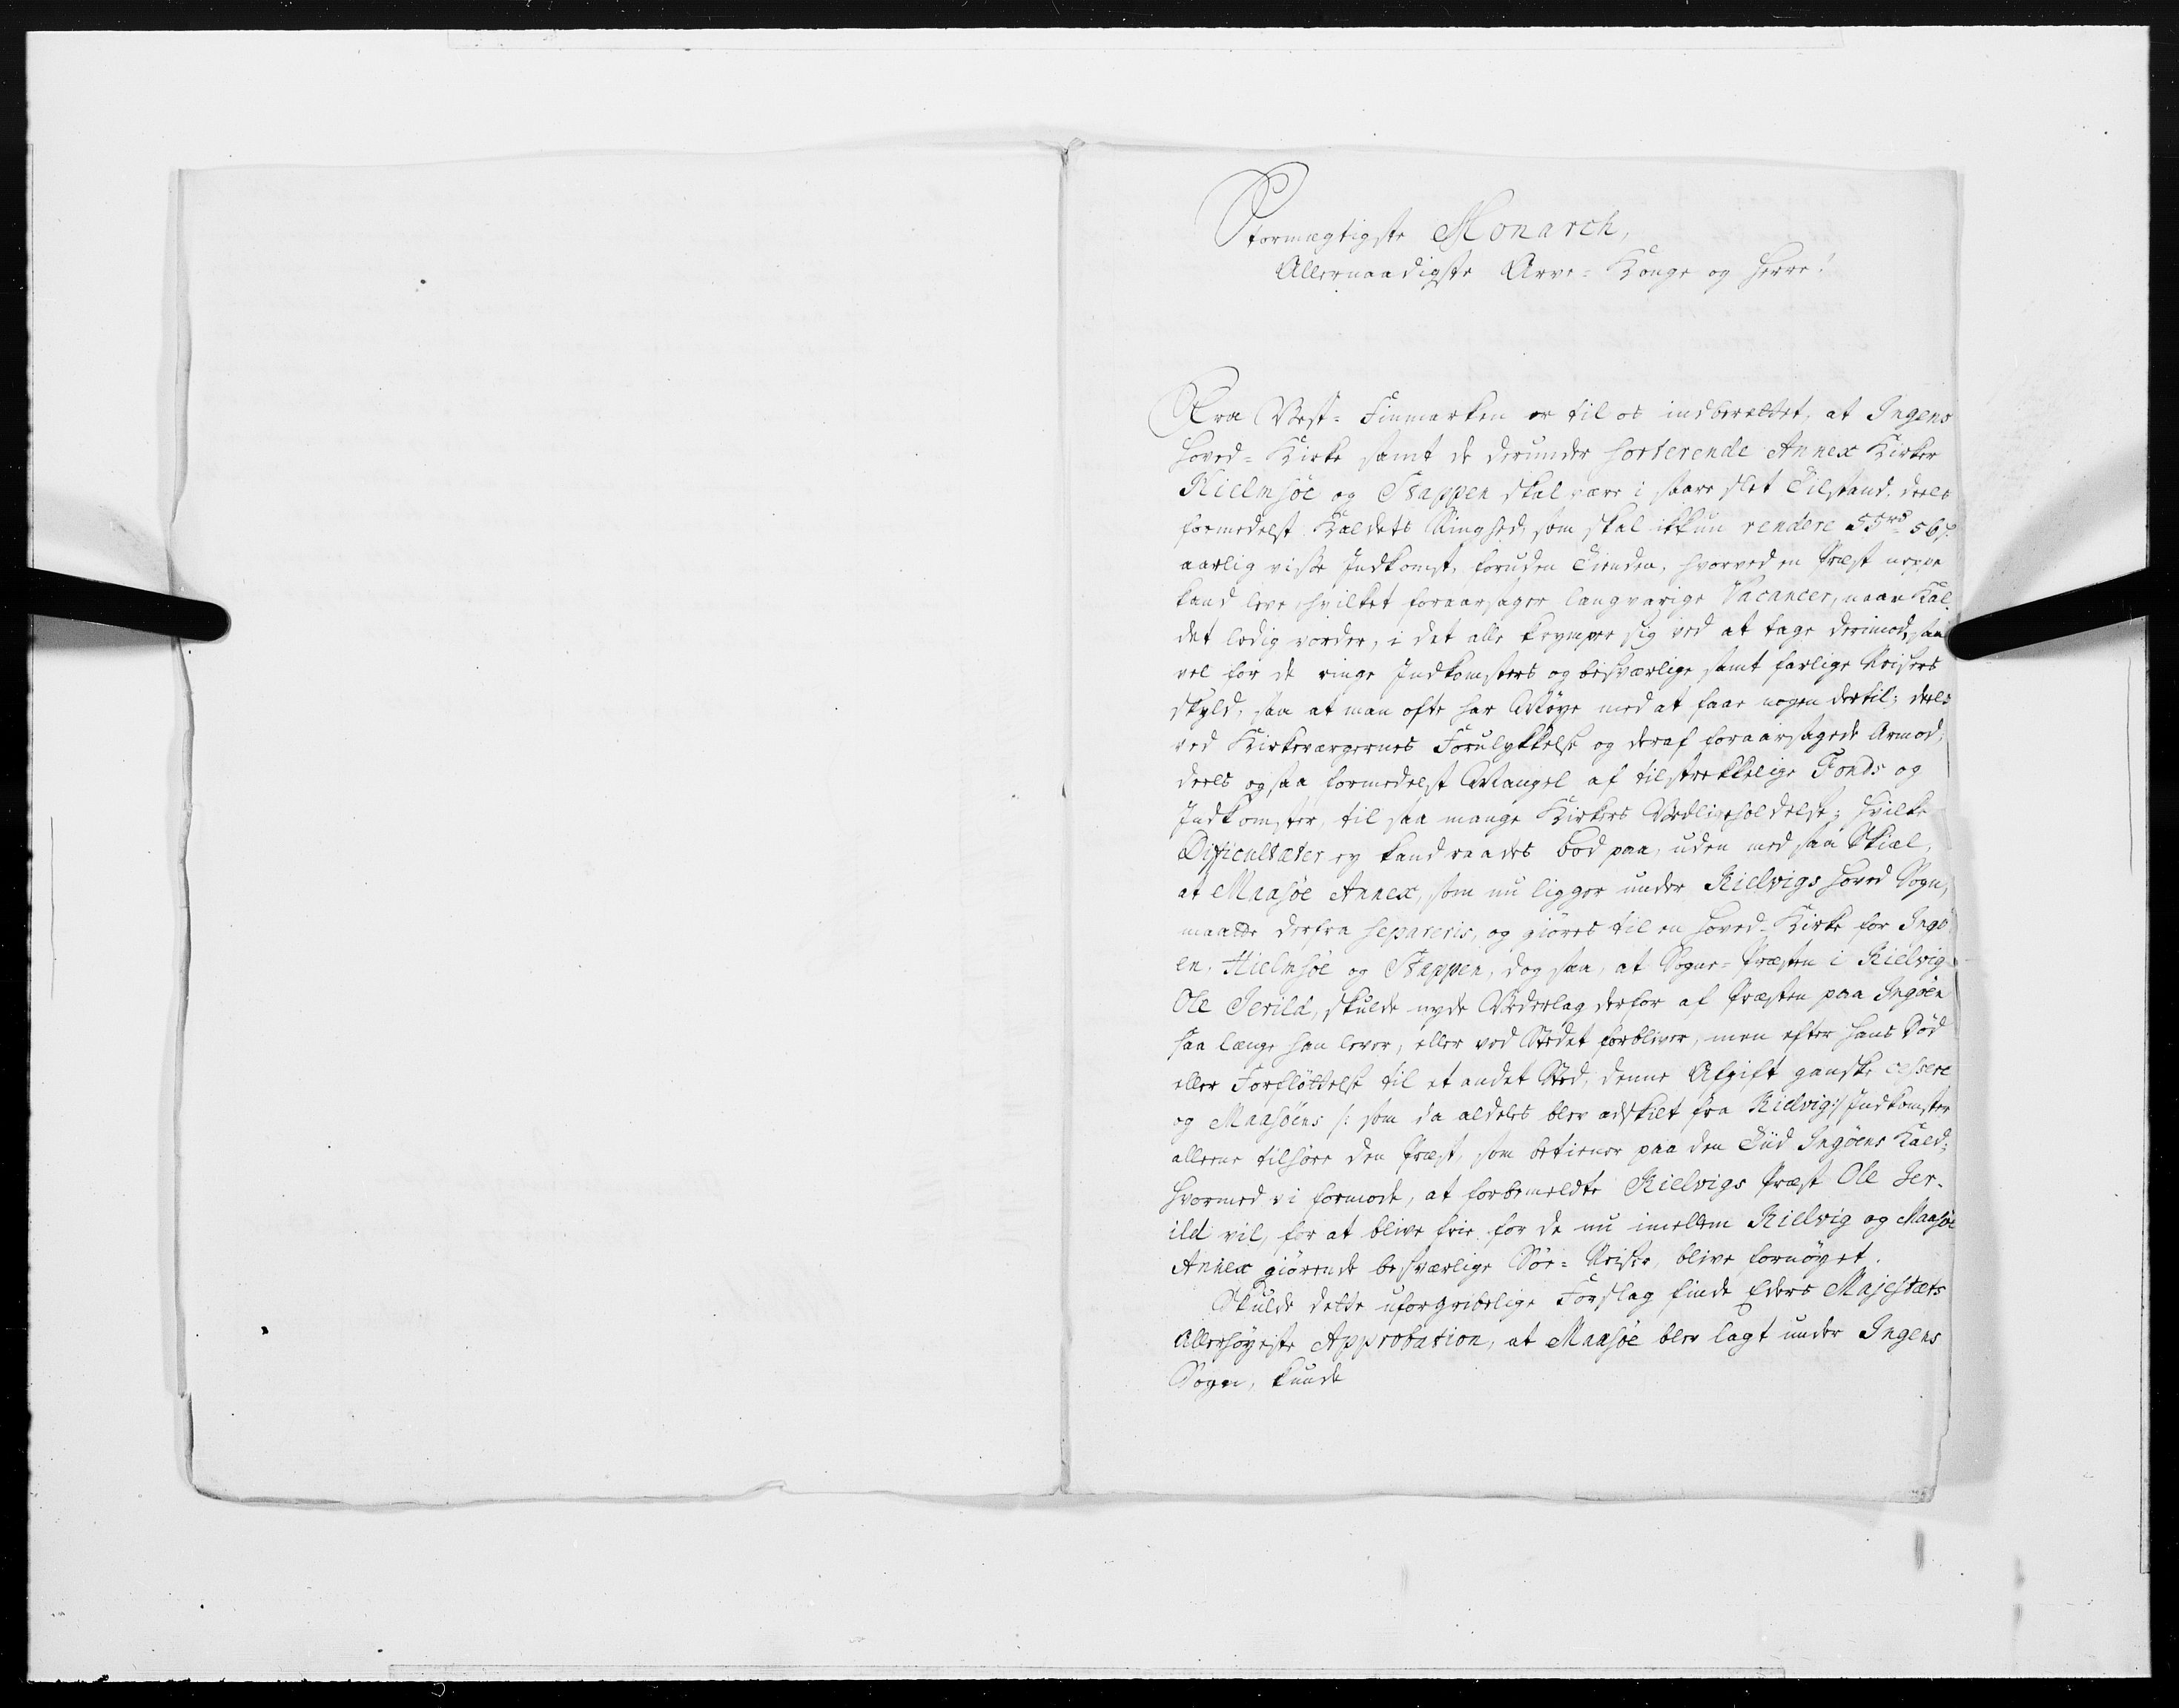 Stormægtigste Monarch,
Allernaadigste Arve-Konge og Herre!
Fra Vest-Finmarken er til os indberettet, at Ingens
Hoved-Kirke samt de derunder sorterende Annex Kirker
Hielmsöe og Stappen skal være i saare slet Tilstand, deels
formedelst Kaldets Ringhed, som skal ikkun rendere 55 rd 56 s.
aarlig visse Indkomst, foruden Tienden, hvorved en Præst neppe
kand leve, hvilket foraarsager langvarige Vacancer, naar Kal-
det ledig vorder, i det alle krymper sig ved at tage derimod, saa
vel for de ringe Indkomsters og besværlige samt farlige Reisers
skyld, saa at man ofte har Møye med at faae nogen dertil; deels
ved Kirkeværgernes Forulykkelse og deraf foraarsagede Armod;
deels ogsaa formedelst Mangel af tilstrekkelige Fonds og
Indkomster, til saa mange Kirkers Vedligeholdelse; hvilke
Difficultæter ey kand raades bod paa, uden med saa Skiæl,
at Maasöe Annex, som nu ligger under Kielvigs Hoved Sogn,
maatte derfra separeris, og giöres til en Hoved-Kirke for Ingö-
en, Hielmsöe og Stappen, dog saa, at Sogne-Præsten i Kielvig
Ole Jerild, skulde nyde Vederlag derfor af Præsten paa Ingöen
saa længe han lever, eller ved Stedet forbliver, men efter hans Död
eller Forflöttelse til et andet Sted, denne Afgift ganske cessere
og Maasöens /: som da aldeles blev adskilt fra Kielvig:/ Indkomster
alleene tilhöre den Præst, som betiener paa den Tiid Ingöens Kald;
hvormed vi formode, at forbemeldte Kielvigs Præst Ole Jer-
ild vil, for at blive frie for de nu imellem Kielvig og Maasöe
Annex giörende besværlige Söe-Reiser, blive fornöyet.
Skulde dette uforgribelige Forslag finde Eders Majestæts
Allerhöyeste Approbation, at Maasöe blev lagt under Ingens
Sogn, kunde